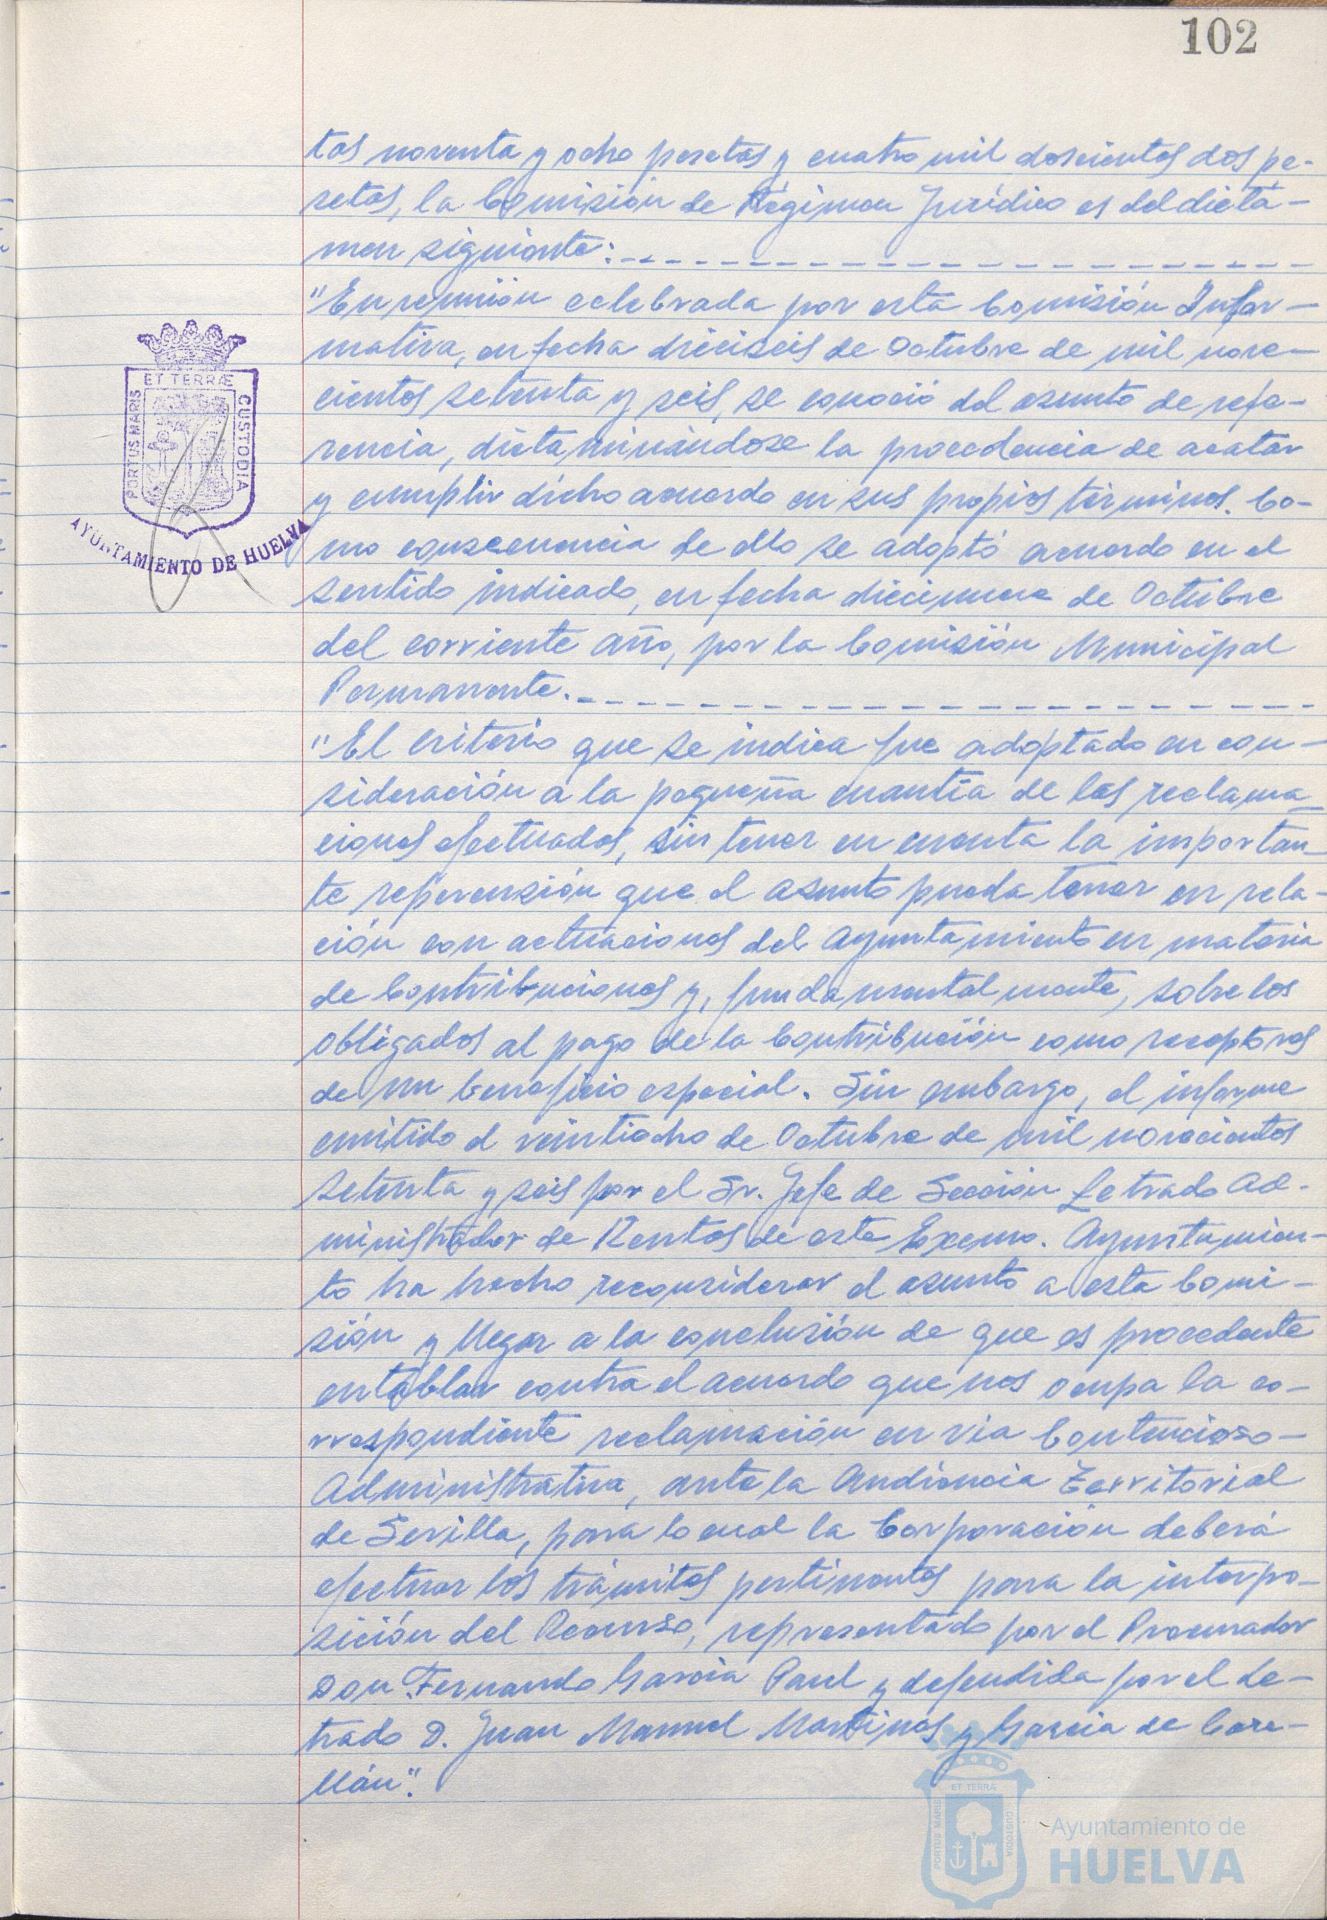 102
tas noventa y ocho pesetas y cuatro mil doscientas dos pe-
setas, la Comisión de Régimen Jurídico es del dictá-
men siguiente:
"En reunión celebrada por esta Comisión Infor-
mativa, en fecha dieciseis de Octubre de mil nove-
cientos setenta y seis, se conoció del asunto de refe-
rencia, dictaminándose la procedencia de acatar
y cumplir dicho acuerdo en sus propios términos. Co-
mo consecuencia de ello se adoptó acuerdo en el
sentido indicado, en fecha diecinueve de Octubre
del corriente año, por la Comisión Municipal
Permanente.
"El criterio que se indica fue adoptado en con-
sideración a la pequeña cuantía de las reclama-
ciones efectuadas, sin tener en cuenta la importan-
te repercusión que el asunto pueda tener en rela-
ción con actuaciones del Ayuntamiento en materia
de Contribuciones y, fundamentalmente, sobre los
obligados al pago de la Contribución como receptores
de un beneficio especial. Sin embargo, el informe
emitido el veintiocho de Octubre de mil novecientos
setenta y seis por el Sr. Jefe de Sección Letrado Ad-
ministrador de Rentas de este Excmo. Ayuntamien-
to ha hecho reconsiderar el asunto a esta Comi-
sión y llegar a la conclusión de que es procedente
entablar contra el acuerdo que nos ocupa la co-
rrespondiente reclamación en via Contencioso-
Administrativa, ante la Audiencia Territorial
de Sevilla, para lo cual la Corporación deberá
efectuar los trámites pertinentes para la interpo-
sición del Recurso, representado por el Procurador
Don Fernando García Paul y defendida por el Le-
trado D. Juan Manuel Martínes y García de Care-
llán".
ET TERRÆ
PORTUS MARIS
CUSTODIA
AYUNTAMIENTO DE HUELVA
ET TERRÆ
PORTUS MARIS
CUSTODIA
Ayuntamiento de
HUELVA